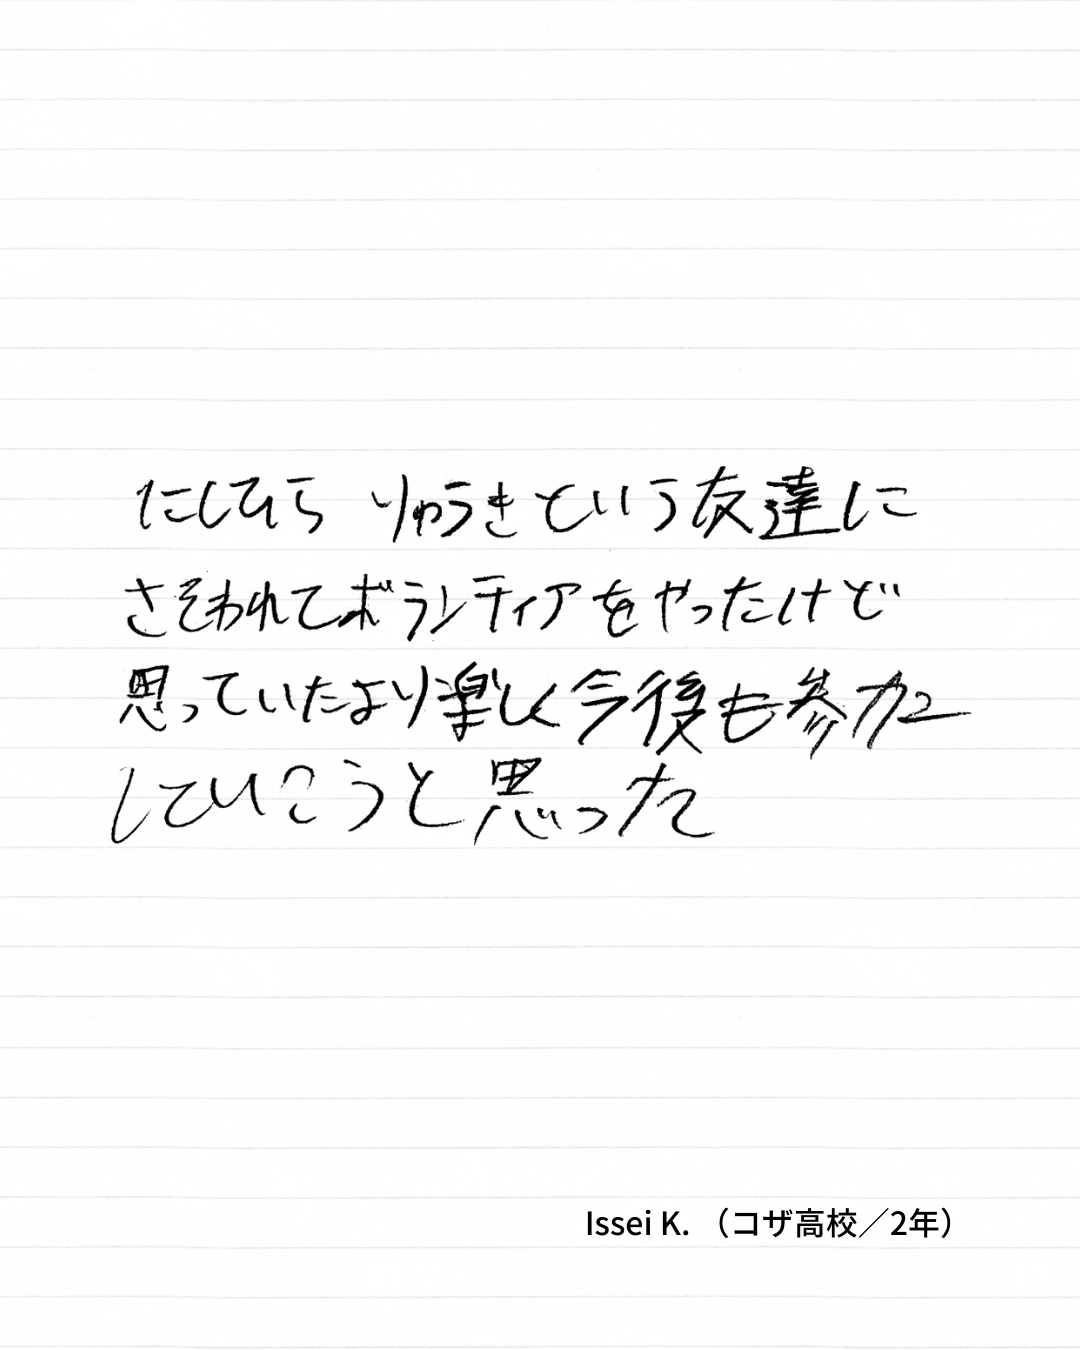 にしひら りゅうきという友達に
さそわれてボランティアをやったけど
思っていたより楽しく今後も参加
していこうと思った
Issei K. （コザ高校／2年）